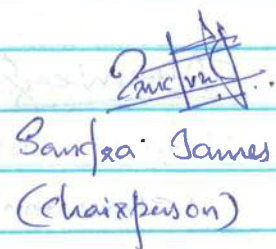 Sandra James
(Chairperson)